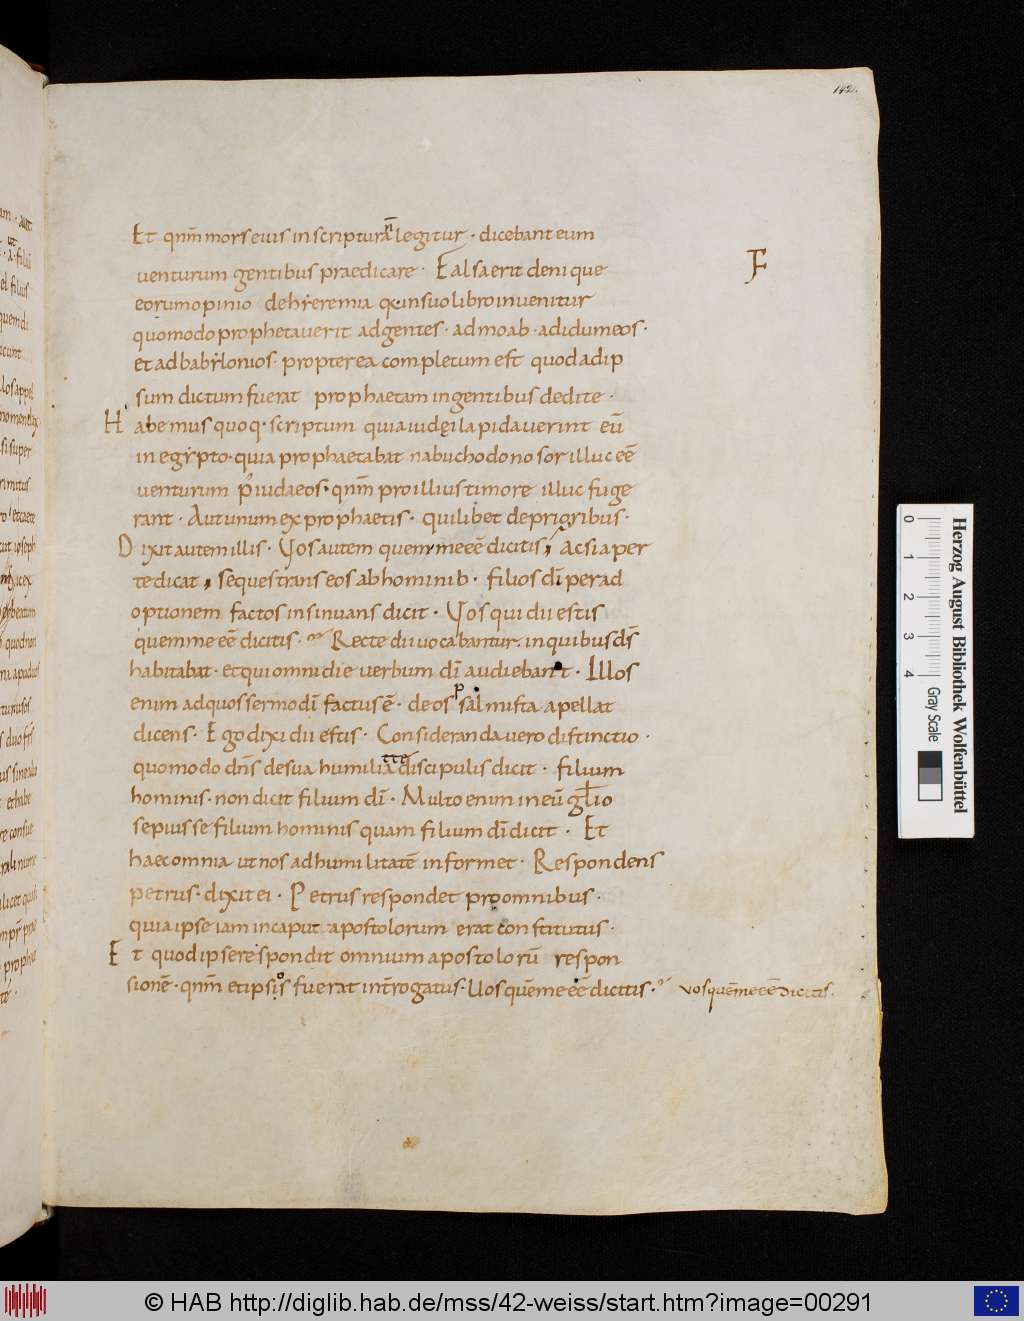 142.
Et qnm̄ mors eius in scriptura legitur · dicebant eum
F
venturum gentibus praedicare · Falsa erit denique
eorum opinio de hyeremia q in suo libro invenitur
quomodo prophetaverit ad gentes · ad moab · ad idumeos ·
et ad babylonios · propterea completum est quod ad ip
sum dictum fuerat prophaetam in gentibus dedi te ·
Habemus quoq· scriptum quia iudęi lapidaverint eū
in egypto · quia prophaetabat nabuchodonosor illuc eē
venturum p iudaeos · qnm̄ pro illius timore illuc fuge
rant · Aut unum ex prophaetis · quilibet de prioribus ·
Dixit autem illis · Vos autem quem me eē dicitis; Ac si aper
te dicat, sequestrans eos ab hominib · filios dī per ad
optionem factos insinuans dicit · Vos qui dii estis
quem me eē dicitis · Recte dii vocabantur · in quibus ds̄
habitabat · et qui omni die verbum dī audiebant · Illos
enim ad quos sermo dī factus ē · deos psalmista apellat
dicens · Ego dixi dii estis · Consideranda vero distinctio ·
quomodo dn̄s de sua humilitate discipulis dicit · filium
hominis · non dicit filium dī · Multo enim in eūglio
sepius se filium hominis quam filium dī dicit · Et
haec omnia ut nos ad humilitatē informet · Respondens
petrus · dixit ei · Petrus respondet pro omnibus ·
quia ipse iam in caput apostolorum erat constitutus ·
Et quod ipse respondit omnium apostolorū respon
sionē · qnm̄ et ipsis fuerat introgatus · Uos quēm me eē dicitis · vos quēm me eē dicitis ·
Herzog August Bibliothek Wolfenbüttel
Gray Scale
0 1 2 3 4
© HAB http://diglib.hab.de/mss/42-weiss/start.htm?image=00291